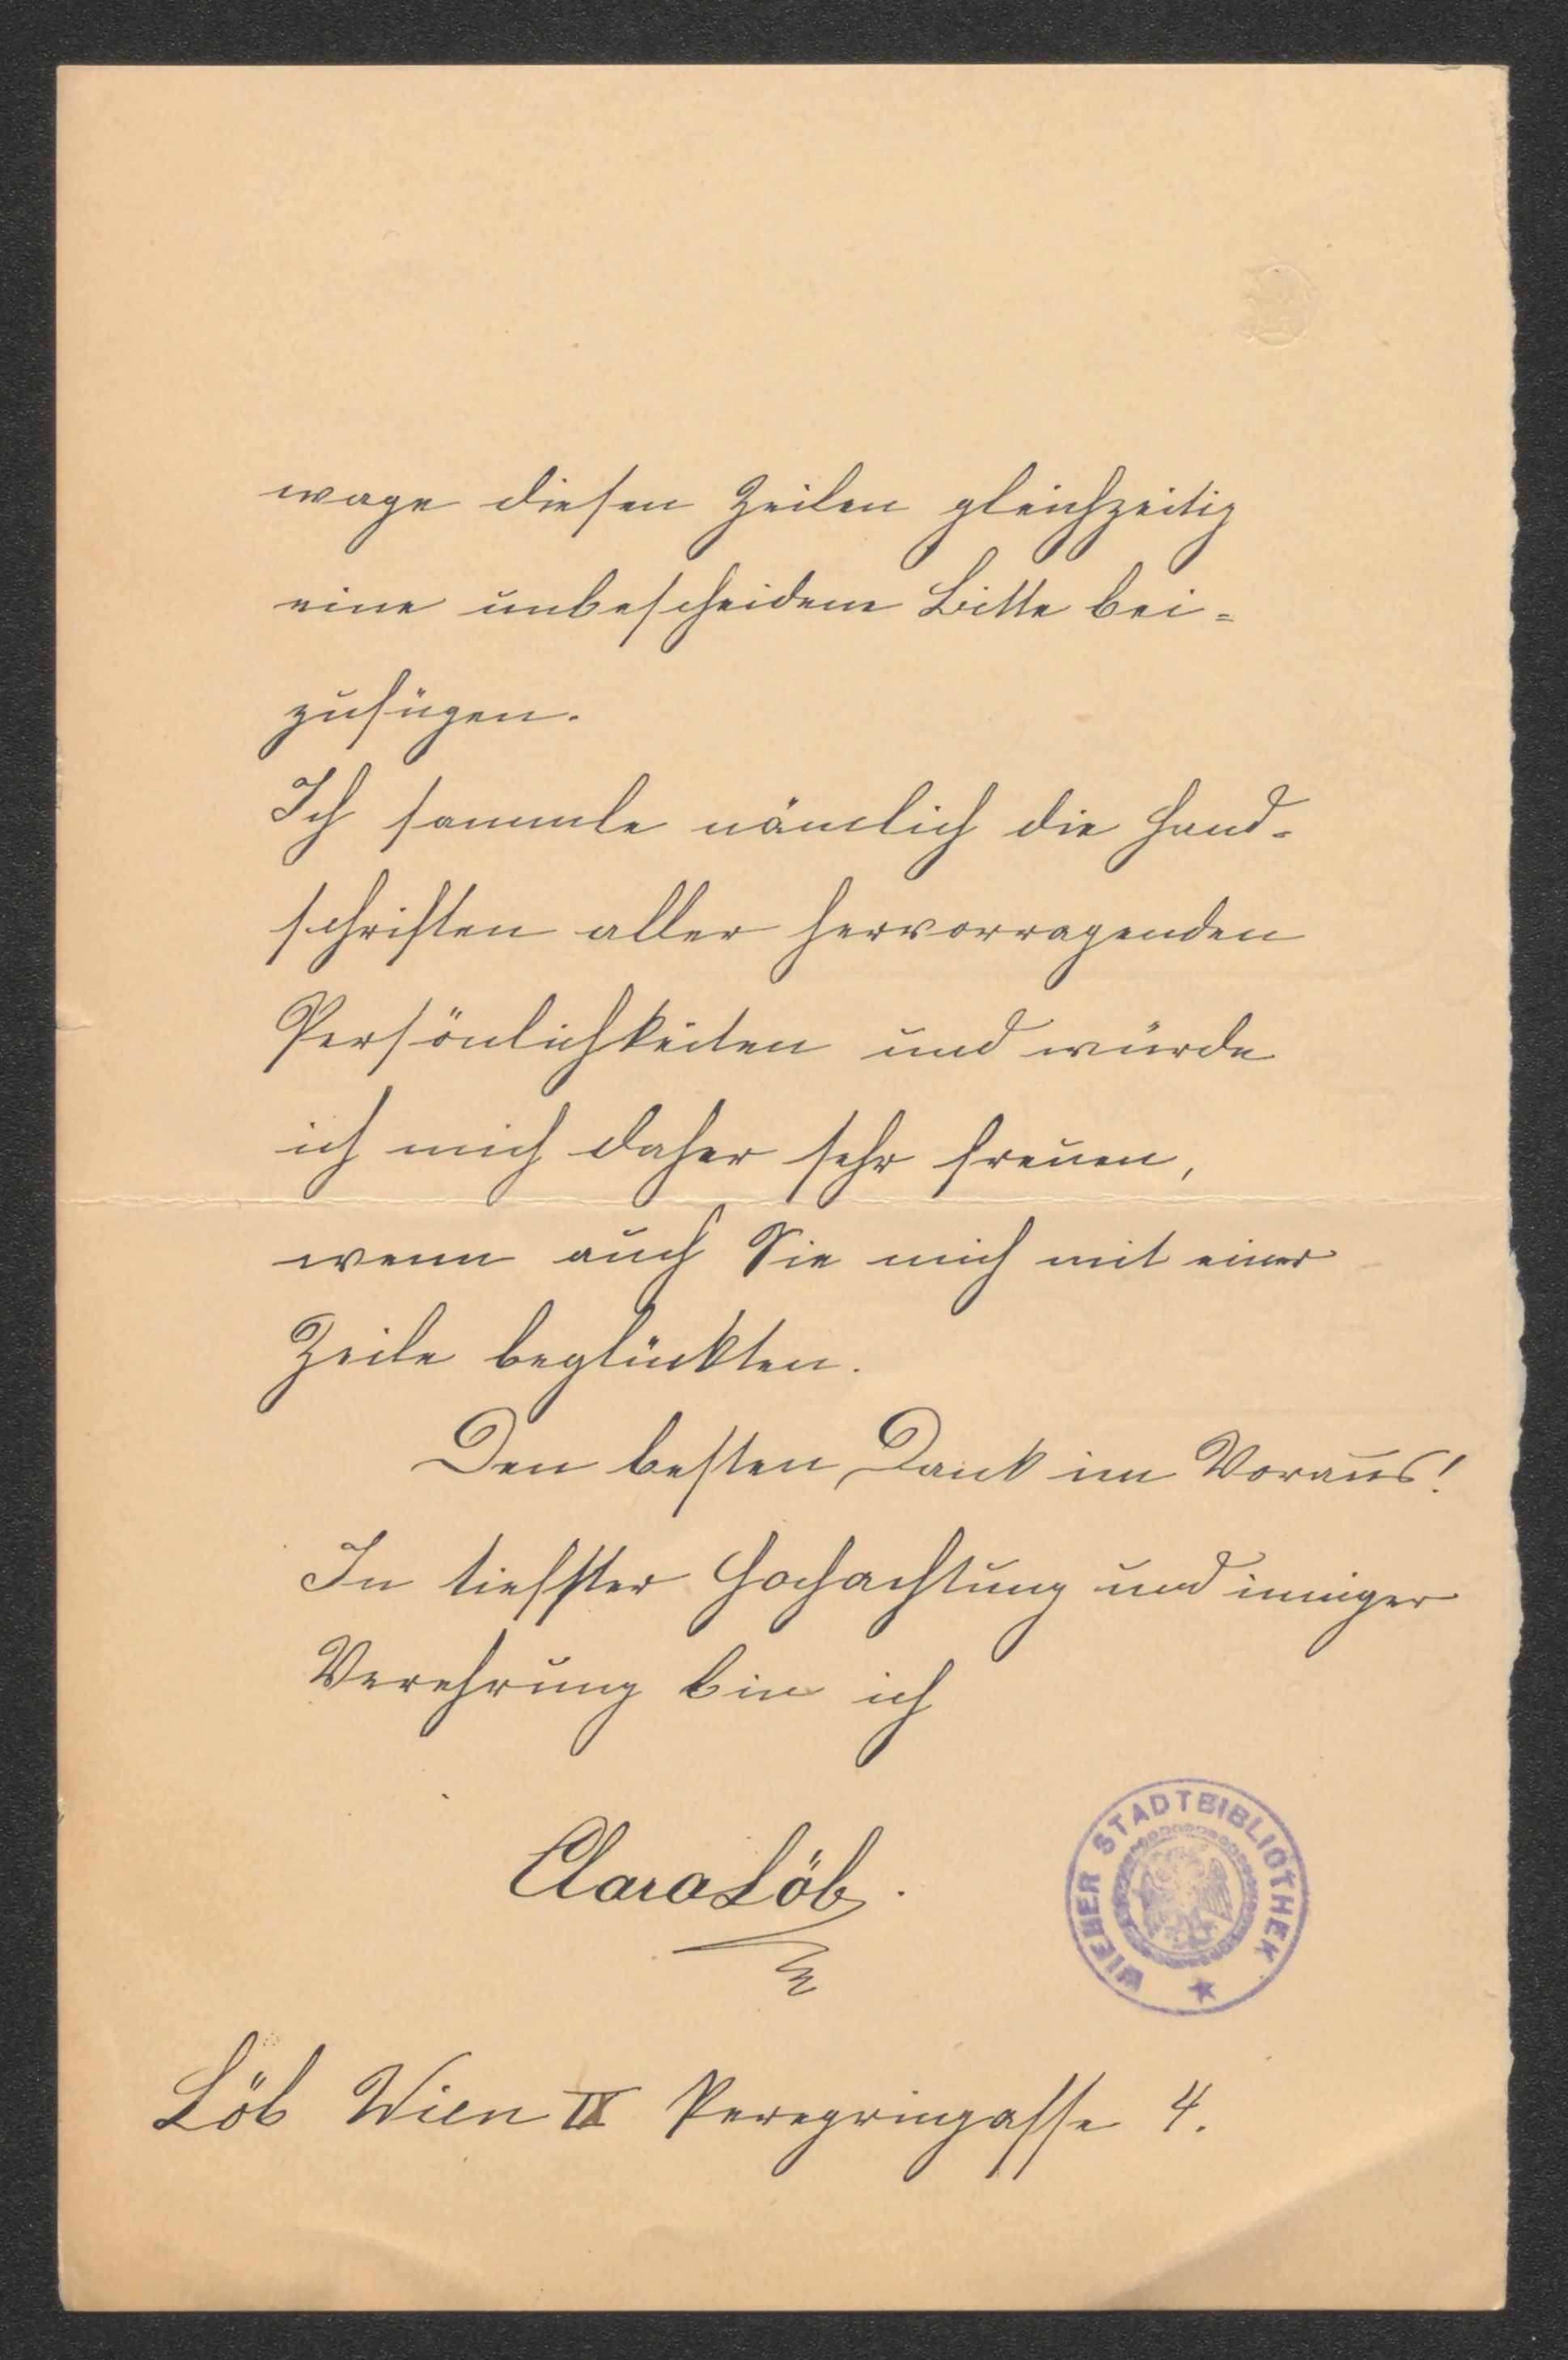 wage diesen Zeilen gleichzeitig
eine unbescheidene Bitte bei=
zufügen.
Ich sammle nämlich die Hand=
schriften aller hervorragenden
Persönlichkeiten und würde
ich mich daher sehr freuen,
wenn auch Sie mich mit einer
Zeile beglückten.
Den besten Dank im Voraus!
In tiefster Hochachtung und inniger
Verehrung bin ich
Clara Löb.
WIENER STADTBIBLIOTHEK
Löb Wien IX Peregringasse 4.